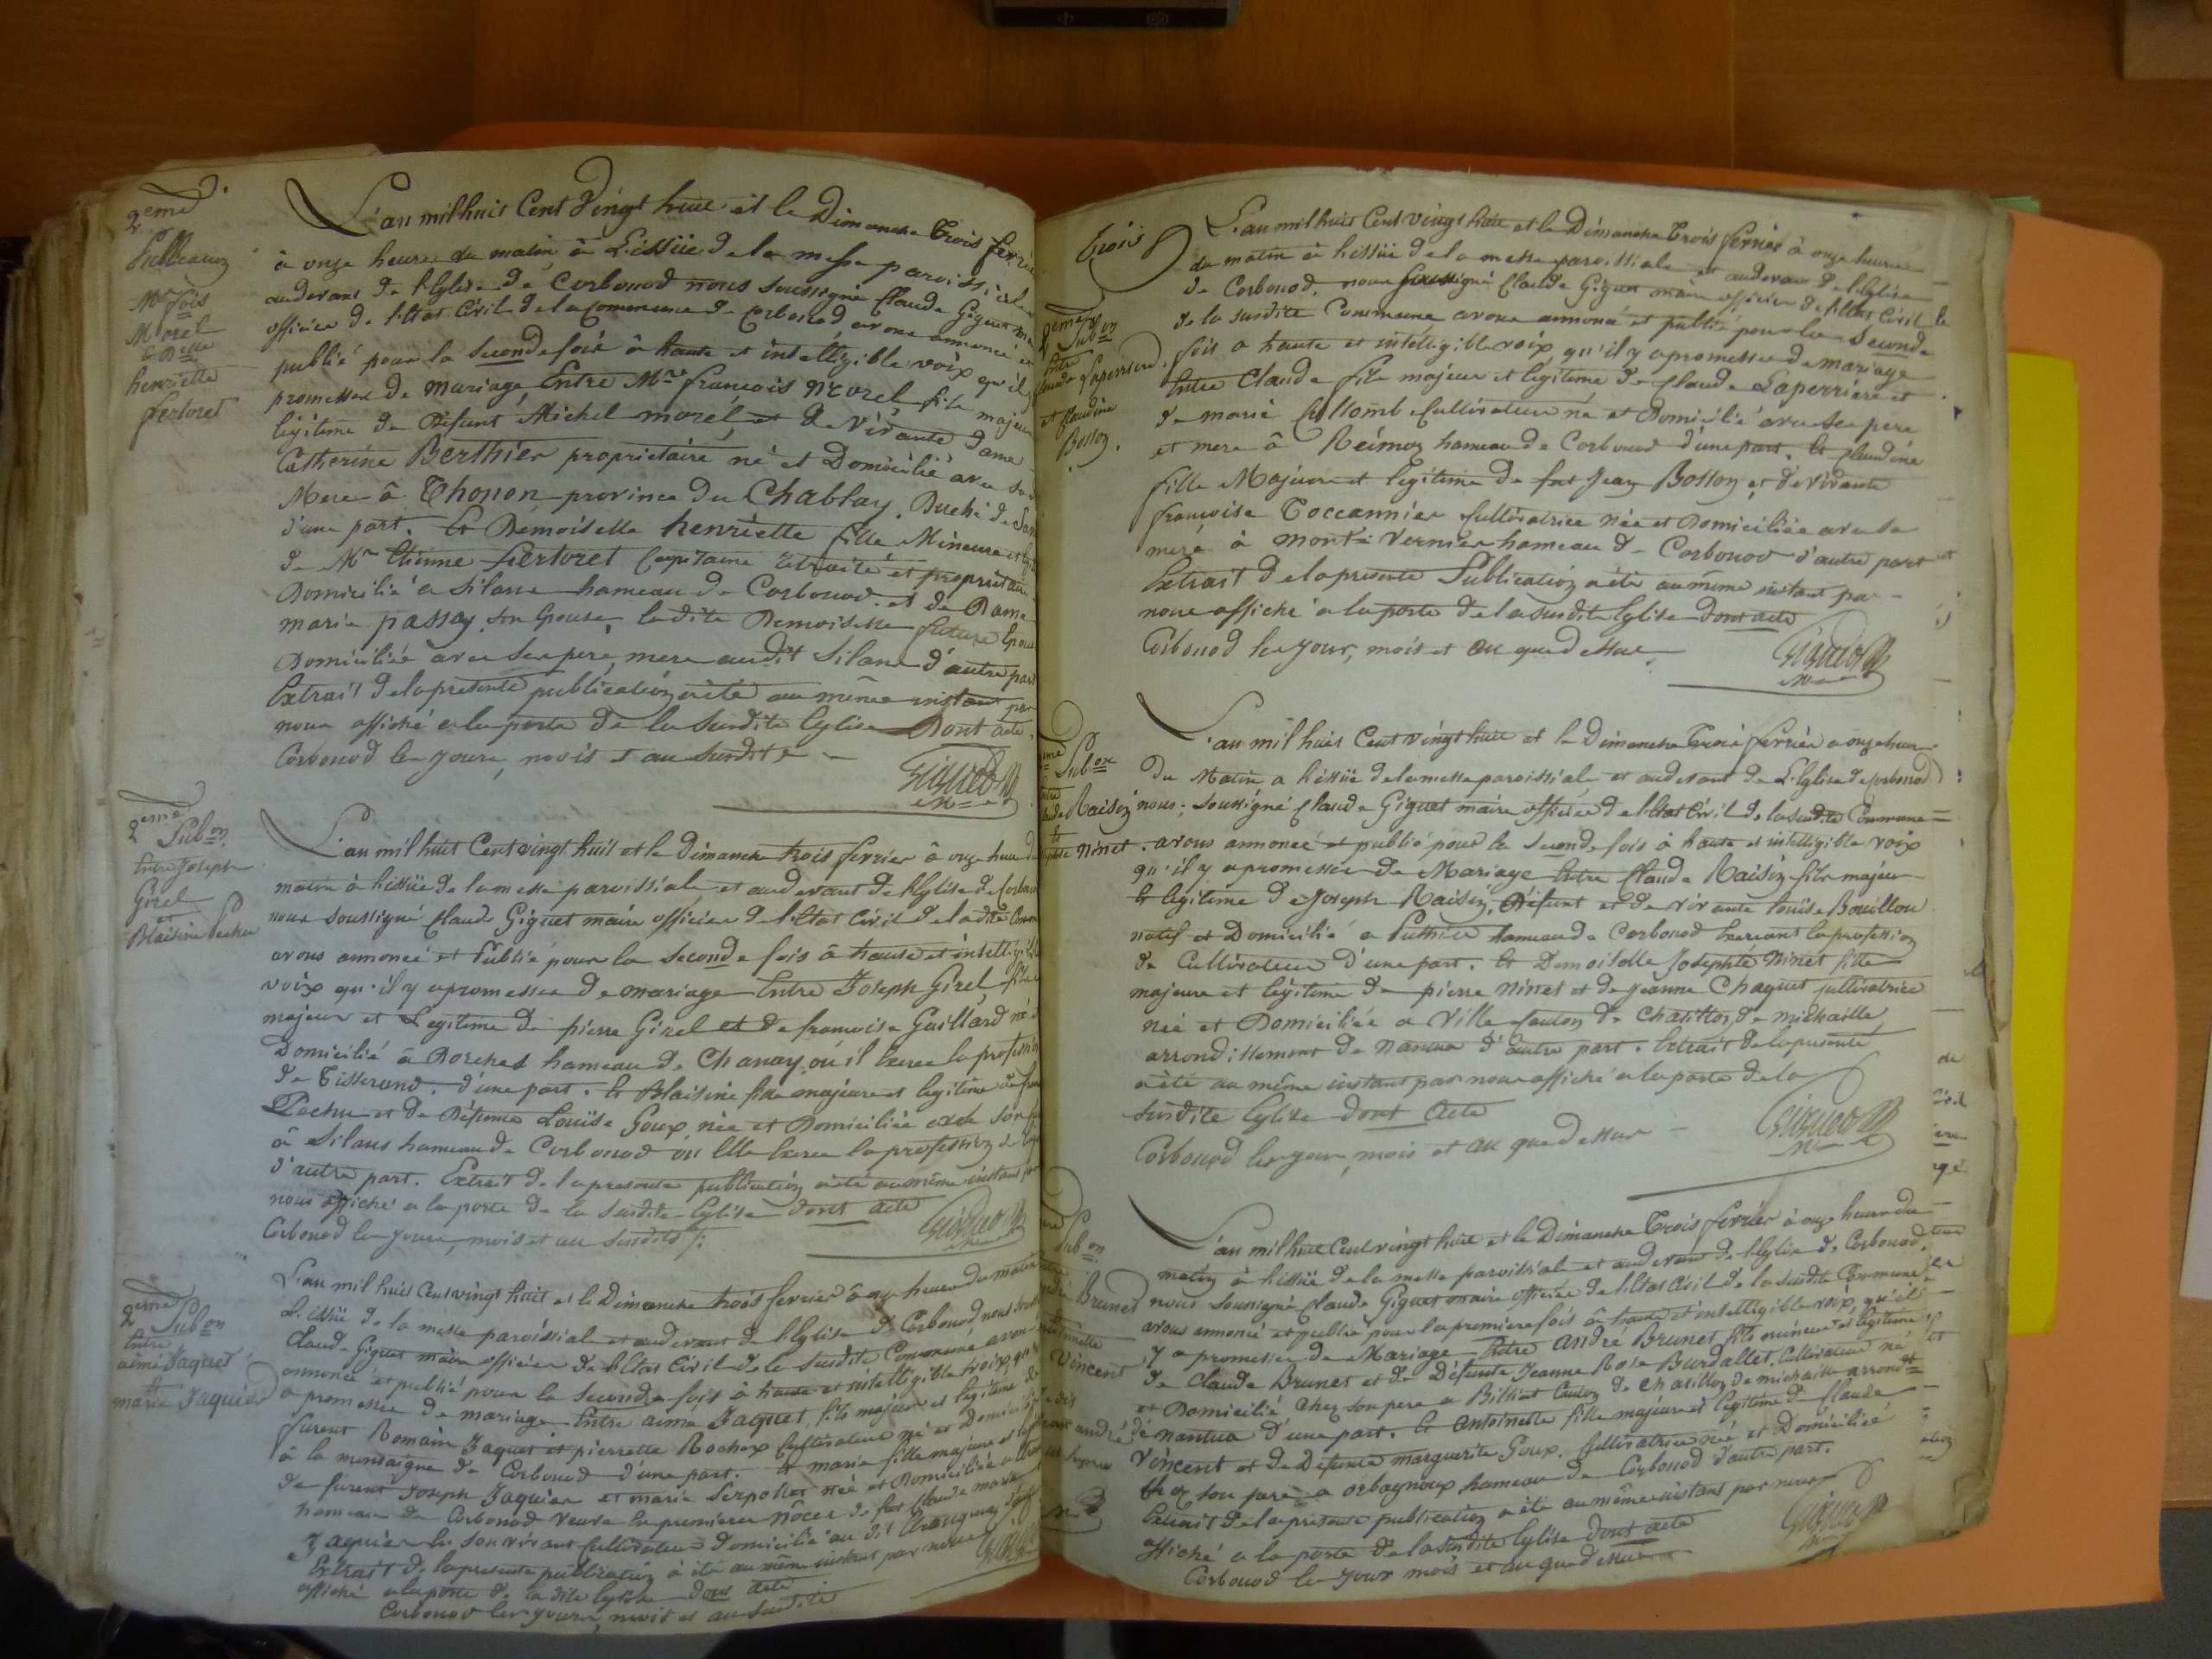 2eme
Publication
Mr fois
Morel
& Delle
henriette
fertoret
L'an mil huit Cent Vingt huit et le Dimanche Trois fevrie
à onze heures du matin à L'issüe de la messe paroissiale
audevant de l'Eglise de Corbonod nous soussigné Claude Giguet ma
officier de l'Etat Civil de la Commune de Corbonod avons annoncé et
publié pour la seconde fois à haute et intelligible voix qu'il y
promesse de mariage Entre Mre francois Morel fils majeur
légitime de Défunt Michel morel, et de Vivante Dame
Catherine Berthier propriétaire né et Domicilié avec sa
Mere à Thonon province du Chablay, Duché de Savo
d'une part. Et Demoiselle henriette fille Mineure et
de Mr Etienne fertoret Capitaine retraité et proprietaire
Domicilié a Silans hameau de Corbonod et de Dame
maria passay son Epouse, ladite Demoiselle future Epous
Domiciliée avec ses pere, mere audit Silans d'autre part
Extrait de la presente publication a été au même instant par
nous affiché a la porte de la susdite Eglise Dont acte
Corbonod les jours, mois et an susdits
Giguet
2eme Pubon
Entre Joseph
Girel
et
Blaisine Pochu
L'an mil huit Cent vingt huit et le Dimanche trois fevrier à onze heures du
matin à l'issüe de la messe paroissiale, et audevant de l'Eglise de Corbonod
nous soussigné Claude Giguet maire officier de l'Etat Civil de ladite Comm
avons annoncé et Publié pour la seconde fois à haute et intelligible
voix qu'il y a promesse de mariage Entre Joseph Girel, fils
majeur et Legitime de pierre Girel et de francoise Gaillard né et
Domicilié à Dorches hameau de Chanay où il Exerce la profession
de Tisserand, d'une part. Et Blaisine fille majeure et legitime de
Pochu et de Défunte Louise Goux, née et Domiciliée
à Silans hameau de Corbonod où Elle Exerce la profession de
d'autre part. Extrait de la presente publication a été au même instant par
nous affiché a la porte de la susdite Eglise dont acte
Corbonod les jours, mois et an susdits
Giguet
2eme Pubon
Entre
aimé Jaquet
&
marie Jaquier
L'an mil huit Cent vingt huit et le Dimanche trois fevrier à onze heures du matin
L'issüe de la messe paroissiale et audevant de l'Eglise de Corbonod nous
Claude Giguet maire officier de l'Etat Civil de la susdite Commune avons
annoncé et publié pour la seconde fois à haute et intelligible voix, qu'il y
a promesse de mariage Entre aimé Jaquet, fils majeur et légitime de
furent Romain Jaquet et pierrette Rochex Cultivateur né et Domicilié
à la montaigne de Corbonod d'une part. Et marie fille majeure et
de furent Joseph Jaquier et marie Serpollet née et Domiciliée
hameau de Corbonod veuve en premieres nôces de feu Claude marie
Jaquier les souvivant Cultivateur Domicilié au dit
Extrait de la presente publication à été au même instant par nous
affiché a la porte de la dite Eglise dont acte
Corbonod les jours, mois et an susdits
Trois
2eme Pubon
Entre
Claude Laperriere
et Claudine
Bosson
L'an mil huit Cent vingt huit et le Dimanche Trois fevrier à onze heures
du matin à l'issüe de la messe paroissiale et audevant de l'Eglise
de Corbonod, nous soussigné Claude Giguet maire officier de l'Etat Civil
de la susdite Commune avons annoncé et publié pour la Seconde
fois a haute et intelligible voix, qu'il y a promesse de mariage
Entre Claude fils majeur et légitime de Claude Laperriere et
de marie Collomb Cultivateur né et Domicilié avec ses pere
et mere à Reimoz hameau de Corbonod d'une part. Et Claudine
fille Majeure et legitime de feu Jean Bosson et de Vivante
francoise Toccannier Cultivatrice née et Domiciliée avec sa
mere à mont vernier hameau de Corbonod d'autre part
Extrait de la presente Publication a été au même instant par
nous affiché a la porte de la susdite Eglise dont acte
Corbonod les jour, mois et an que dessus
Giguet
Pubon
Raisin
et
Ninet
L'an mil huit Cent vingt huit et le Dimanche Trois fevrier a onze heures
du Matin a l'issüe de la messe paroissiale et audevant de L'Eglise de Corbonod
nous, soussigné Claude Giguet maire officier de l'Etat Civil de la susdite Commune
avons annoncé et publié pour la seconde fois à haute et intelligible voix
qu'il y a promesse de Mariage Entre Claude Raisin fils majeur
Et légitime de Joseph Raisin, Défunt et de vivante Louise Bouillon
natif et Domicilié a Puthier hameau de Corbonod Exercant la profession
de Cultivateur d'une part. Et Demoiselle Josephte Ninet fille
majeure et légitime de pierre Ninet et de Jeanne Chaquet Cultivatrice
née et Domiciliée a Ville Canton de Chatillon de michaille
arrondissement de Nantua d'autre part. Extrait de la presente
a été au même instant par nous affiché a la porte de la
susdite Eglise dont acte
Corbonod les jour, mois et an que dessus
Giguet
Pubon
Brunet
Vincent
L'an mil huit Cent vingt huit et le Dimanche Trois fevrier à onze heures du
matin à l'issüe de la messe paroissiale et audevant de l'Eglise de Corbonod,
nous soussigné Claude Giguet maire officier de l'Etat Civil de la susdite Commune
avons annoncé et publié pour la premiere fois à haute et intelligible voix, qu'il
y a promesse de Mariage Entre André Brunet fils mineur et légitime
de Claude Brunet et de Défunte Jeanne Rose Burdallet, Cultivateur né
et Domicilié Chez son pere a Billiat Canton de Chatillon de michaille arrondt
de nantua d'une part. Et Antoinette fille majeure et légitime de Claude
Vincent et de Défunte marguerite Goux. Cultivatrice née et Domiciliée
Chez son pere a orbagnoux hameau de Corbonod d'autre part.
Extrait de la presente publication a été au même instant par nous
affiché a la porte de la susdite Eglise dont acte
Corbonod les jour mois et an que dessus
Giguet